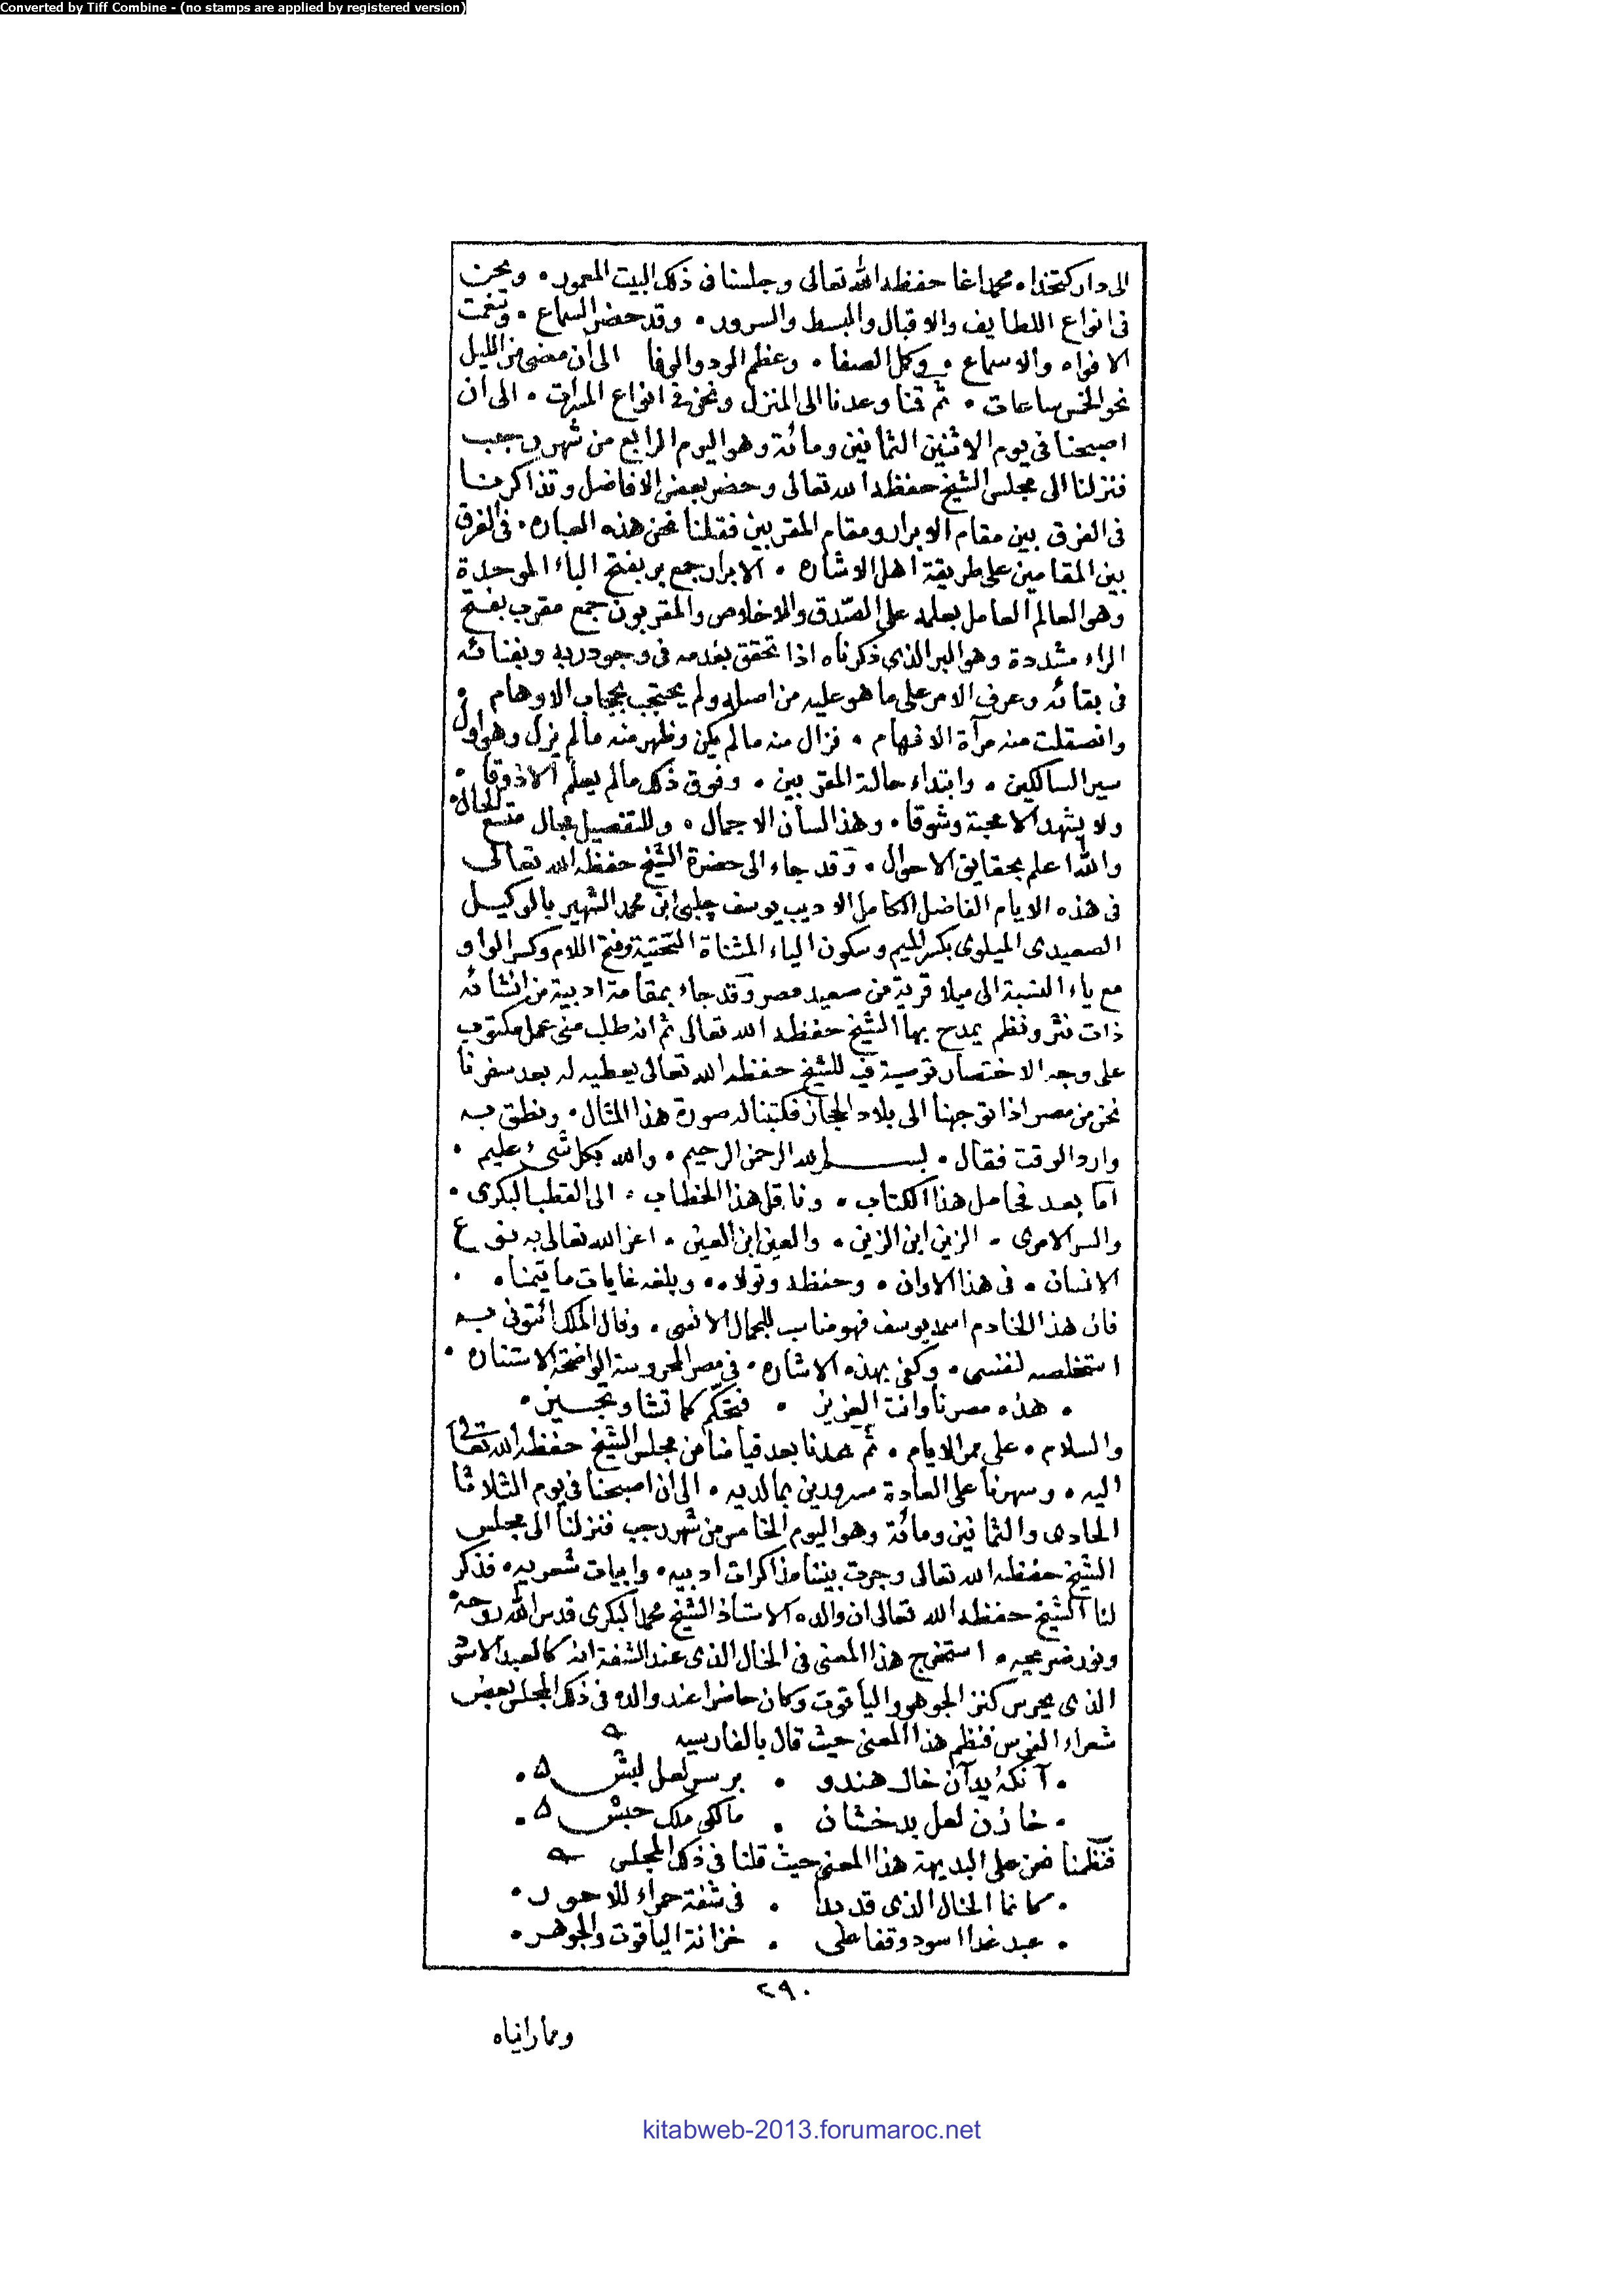 Converted by Tiff Combine - (no stamps are applied by registered version)
الى دار كتخداه محمد اغا حفظه الله تعالى وجلسنا في ذلك البيت المعمور • ونحن
في انواع اللطايف والاقبال والبسط والسرور • وقد حضر السماع • وتنغمت
الافواه والاسماع • وكمل الصفا • وعظم الود والوفا الى أن مضى من الليل
نحو الخمس ساعات • ثم قمنا وعدنا الى المنزل ونحن في انواع المسرات • الى أن
اصبحنا في يوم الاثنين الثمانين ومائة وهو اليوم الرابع من شهر رجب
فنزلنا الى مجلس الشيخ حفظه الله تعالى وحضر بعض الافاضل وتذاكرنا
في الفرق بين مقام الابرار ومقام المقربين فقلنا نحن هذه العباره • في الفرق
بين المقامين على طريقة اهل الاشاره • الابرار جمع بر بفتح الباء الموحدة
وهو العالم العامل بعلمه على الصّدق والاخلاص والمقربون جمع مقرب بفتح
الراء مشددة وهو البر الذى ذكرناه اذا تحقق بعدمه في وجود ربه وبفنائه
في بقائه وعرف الامر على ما هو عليه من اصله ولم يحتجب بحجاب الاوهام •
وانصقلت منه مرآة الافهام • فزال منه مالم يكن وظهر منه مالم يزل وهو اول
سير السالكين • وابتداء حالة المقربين • وفوق ذلك مالم يعلم الا ذوقا •
ولا يشهد الا محبة وشوقا • وهذا لسان الاجمال • وللتفصيل مجال متسع للحال •
والله اعلم بحقايق الاحوال • وقد جاء الى حضرة الشيخ حفظه الله تعالى
في هذه الايام الفاضل الكامل الاديب يوسف چلبى ابن محمد الشهير بالوكيل
الصعيدى الميلوى بكسر الميم وسكون الياء المثناة التحتية وفتح اللام وكسر الواو
مع ياء النسبة الى ميلا قرية من صعيد مصر وقد جاء بمقامة ادبية من انشائه
ذات نثر ونظم يمدح بها الشيخ حفظه الله تعالى ثم انه طلب منى عمل مكتوب
على وجه الاختصار توصية فيه للشيخ حفظه الله تعالى يعطيه له بعد سفرنا
نحن من مصر اذا توجهنا الى بلاد الحجاز فكتبنا له صورة هذا المثال • ونطق به
وارد الوقت فقال • بسم الله الرحمن الرحيم • والله بكل شيء عليم •
اما بعد فحامل هذا الكتاب • وناقل هذا الخطاب • الى القطب البكرى •
والسر الامرى • الزين ابن الزين • والعين ابن العين • اعز الله تعالى به نوع
الانسان • في هذا الاوان • وحفظه وتولاه • وبلغه غايات ما يتمناه •
فان هذا الخادم اسمه يوسف فهو مناسب للجمال الانسى • وقال الملك ائتونى به
استخلصه لنفسى • وكفى بهذه الاشاره • في مصر المحروسة الواضحة الاستناره •
• هذه مصرنا وانت العزيز • فتحكّم كما تشا وتجسين •
والسلام • على ممر الايام • ثم عمدنا بعد قيامنا من مجلس الشيخ حفظه الله تعالى
اليه • وسهرنا على العادة مسرورين بما لديه • الى ان اصبحنا في يوم الثلاثا
الحادى والثمانين ومائة وهو اليوم الخامس من شهر رجب فنزلنا الى مجلس
الشيخ حفظه الله تعالى وجرت بيننا مذاكرات ادبيه • وابيات شعريه • فذكر
لنا الشيخ حفظه الله تعالى ان والده الاستاذ الشيخ محمد البكرى قدس الله روحه •
ونور ضريحه • استخرج هذا المعنى في الخال الذى عند الشفة انه كالعبد الاسود
الذى يحرس كنز الجوهر والياقوت وكان حاضرا عند والده في ذلك المجلس بعض
شعراء الفرس فنظم هذا المعنى حيث قال بالفارسيه
• آنكه بدآن خال هندو • بر سر لعل لبش •
• خازن لعل بدخشان • مالكى ملك حبش •
فنظمنا نحن على البديهة هذا المعنى حيث قلنا في ذلك المجلس
• كانما الخال الذى قد بدا • في شفة حمراء للاحور •
• عبد غدا اسود وقفا على • خزانة الياقوت والجوهر •
٢٩٠
ومما رايناه
kitabweb-2013.forumaroc.net